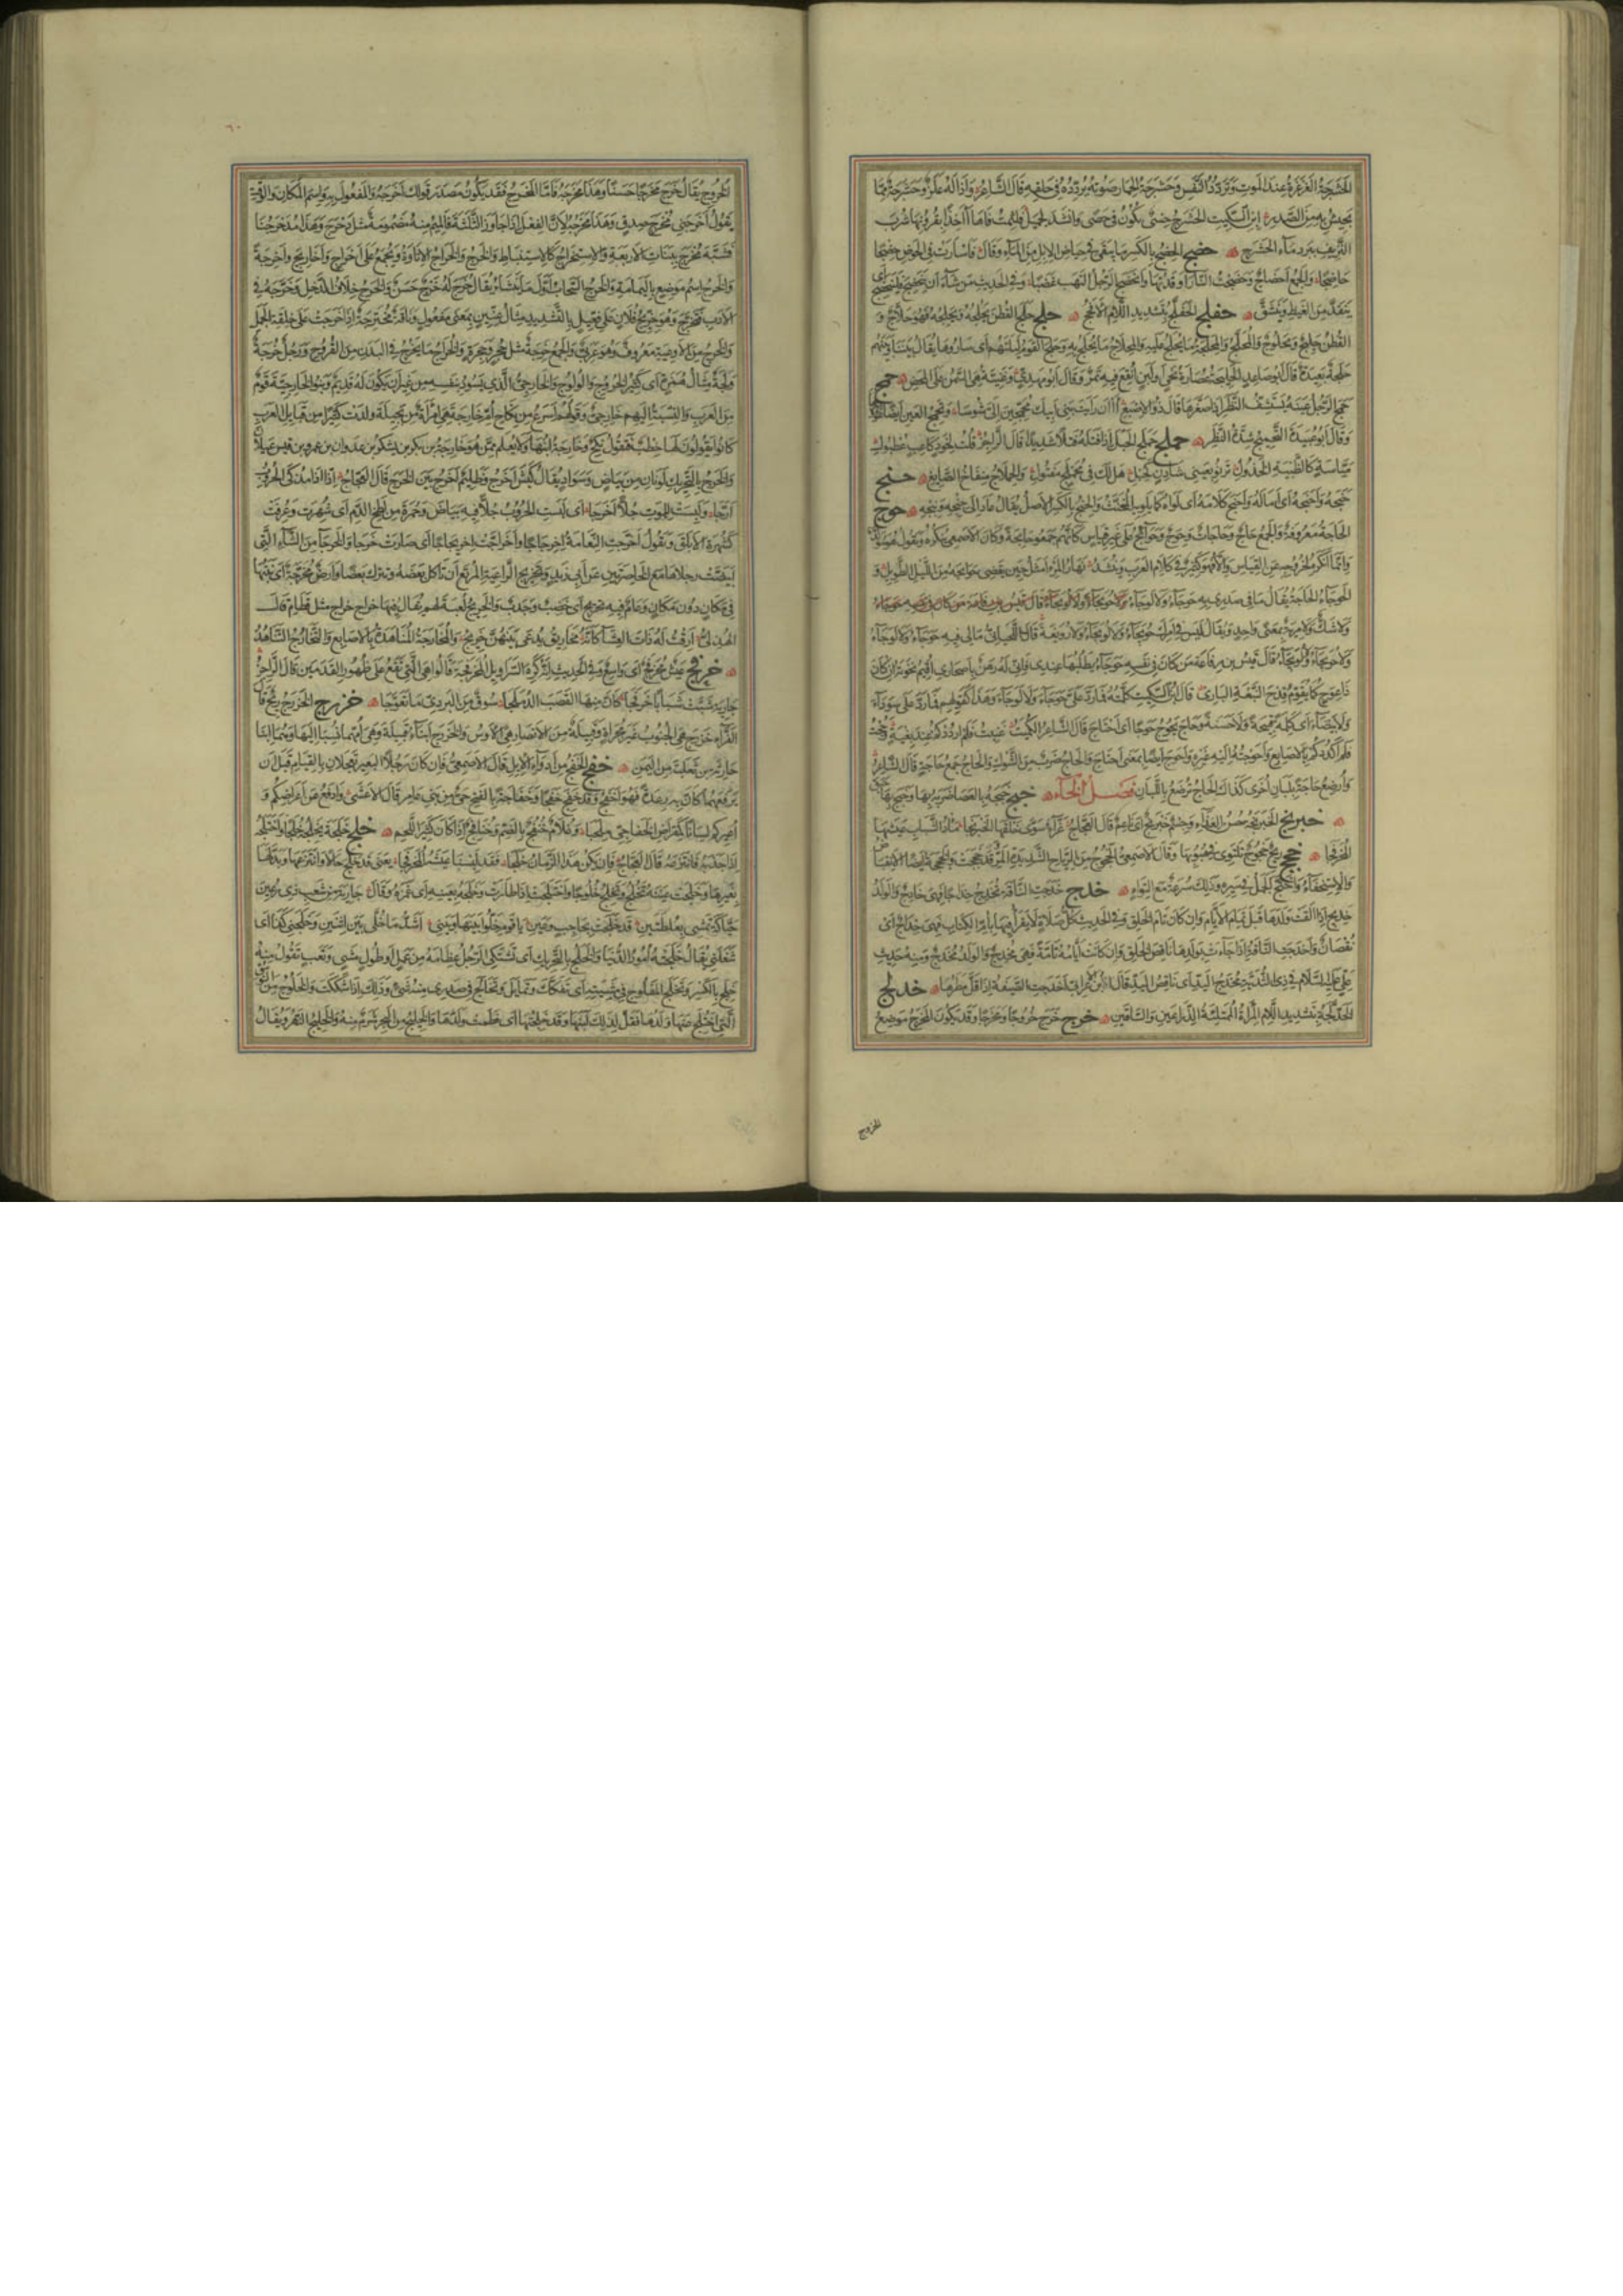 الحشرجة الغرغرة عند الموت وتردد النفس وحشرجة الحمار صوته يردده في حلقه قال الشاعر واذا له علز وحشرجة مما
يجيش به من الصدر ابن السكيت الحشرج حسى يكون في حصى وانشد لجميل فلثمت فاها آخذا بقرونها شرب
النزيف ببرد ماء الحشرج حضج الحضج بالكسر ما يبقى في حياض الابل من الماء وقال فاسأرت في الحوض حضجا
حاضجا والجمع احضاج وحضجت النار اوقدتها وانحضج الرجل التهب غضبا وفي الحديث من شاء ان ينحضج فلينحضج اى
ينقد من الغيظ وينشق حفلج الحفلج بتشديد اللام الافحج حلج حلج القطن يحلجه ويحلجه فهو حلاج و
القطن حليج ومحلوج والمحلج والمحلجة ما يحلج عليه والمحلاج ما يحلج به وحلج القوم ليلتهم اى ساروها يقال بيننا وبينهم
حلجة بعيدة قال ابو صاعد الحليجة عصارة نحى ولبن انقع فيه تمر وقال ابو مهدى وغنية هى السمن على المخض حمج
حمج الرجل عينه يستشف النظر اذا صغرها قال ذو الاصبع أان رأيت بنى ابيك محمجين الى شوسا وتحميج العين ايضا غؤورها
وقال ابو عبيدة التحميج شدة النظر حملج حملج الحبل اذا فتله فتلا شديدا قال الراجز قلت لخود كاعب عطبول
مياسة كالظبية الخذول ترنو بعينى شادن كحيل هل لك في محملج مفتول والحملاج منفاخ الصايغ حنج
حنجه واحنجه اى اماله واحنج كلامه اى لواه كما يلويه المخنث والحنج بالكسر الاصل يقال عاد الى حنجه وبنجه حوج
الحاجة معروفة والجمع حاج وحاجات وحوج وحوائج على غير قياس كانهم جمعوا حائجة وكان الاصمعى ينكره ويقول هو مولد
وانما انكره لخروجه عن القياس والا فهو كثير في كلام العرب وينشد نهار المرء امثل حين يقضى حوائجه من الليل الطويل و
الحوجاء الحاجة يقال ما في صدرى به حوجاء ولا لوجاء
ولا شك ولا مرية بمعنى واحد ويقال ليس في امرك حويجاء ولا لويجاء ولا رويغة قال اللحيانى مالى فيه حوجاء ولا لوجاء
ولا حويجاء ولا لويجاء قال قيس بن رفاعة من كان في نفسه حوجاء يطلبها عندى فانى له رهن باصحار اقيم نخوته ان كان
ذا عوج كما يقوم قدح النبعة البارى قال ابن السكيت كلمته فما رد على حوجاء ولا لوجاء وهذا كقولهم فما رد على سوداء
ولا بيضاء اى كلمة قبيحة ولا حسنة وحاج يحوج حوجا اى احتاج قال الشاعر الكميت غنيت فلم ارددكم عند بغية وحجت
فلم اكددكم بالاصابع واحوجه اليه غيره واحوج ايضا بمعنى احتاج والحاج ضرب من الشوك والحاج جمع حاجة قال الشاعر
وارضع حاجة بلبان اخرى كذاك الحاج ترضع باللبان فصل الخاء خبج خبجه بالعصا ضربه بها وخبج بها حبق
خبرنج الخبرنجة حسن الغذاء وجسم خبرنج اى ناعم قال العجاج غراء سوى خلقها الخبرنجا مأد الشباب عيشها
المخرفجا خجج ريح خجوج تلتوى في هبوبها وقال الاصمعى الخجوج من الرياح الشديدة المر وقد خجت والخجخجة ايضا الانقباض
والاستخفاء واختج الجمل في سيره وذلك سرعة مع التواء خدج خدجت الناقة تخدج خداجا فهى خادج والولد
خديج اذا القت ولدها قبل تمام الايام وان كان تام الخلق وفي الحديث كل صلاة لا يقرأ فيها بام الكتاب فهى خداج اى
نقصان واخدجت الناقة اذا جاءت بولدها ناقص الخلق وان كانت ايامه تامة فهى مخدج والولد مخدج ومنه حديث
على عليه السلام في ذى الثدية مخدج اليد اى ناقص اليد قال ابن الاعرابى اخدجت الصيفة اذا قل مطرها خدلج
الخدلجة بتشديد اللام المرأة الممتلئة الذراعين والساقين خرج خرج خروجا ومخرجا وقد يكون المخرج موضع
الخروج
٦٠
الخروج يقال خرج مخرجا حسنا وهذا مخرجه فاما المخرج فقد يكون مصدر قولك اخرجه والمفعول به واسم المكان والوقت
يقول اخرجنى مخرج صدق وهذا مخرجه لان الفعل اذا جاوز الثلثة فالميم منه مضمومة مثل دحرج وهذا مدحرجنا
فشبه مخرج ببنات الاربعة والاستخراج كالاستنباط والخرج والخراج الاتاوة ويجمع على اخراج واخاريج واخرجة
والخرج اسم موضع باليمامة والخرج السحاب اول ما ينشأ يقال خرج له خرج حسن والخرج خلاف الدخل وخرجه في
الادب فتخرج وهو خريج فلان على فعيل بالتشديد مثال عنين بمعنى مفعول وناقة مخترجة اذا خرجت على خلقة الجمل
والخرج من الاوعية معروف وهو عربى والجمع خرجة مثل جحر وجحرة والخراج ما يخرج في البدن من القروح ورجل خرجة
ولجة مثال همزة اى كثير الخروج والولوج والخارجى الذى يسود بنفسه من غير ان يكون له قديم وبنو الخارجية قوم
من العرب والنسبة اليهم خارجى وقولهم اسرع من نكاح ام خارجة هى امرأة من بجيلة ولدت كثيرا من قبايل العرب
كانوا يقولون لها خطب فتقول نكح وخارجة ابنها ولا يعلم ممن هو وخارجة بن بكر بن يشكر بن عدوان بن عمرو بن قيس عيلان
والخرج بالتحريك لونان من بياض وسواد يقال كبش اخرج وظليم اخرج بين الخرج قال العجاج انا اذا مذكى الحروب
ارجا ولبست للموت جلا اخرجا اى لبست الحروب جلا فيه بياض وحمرة من لطخ الدم اى شهرت وعرفت
كشهرة الابلق وتقول اخرجت النعامة اخرجاجا واخراجت اخريجاجا اى صارت خرجا والخرجاء من الشاء التى
ابيضت رجلاها مع الخاصرتين عن ابى زيد وتخريج الراعية المرتع ان تاكل بعضه وتترك بعضا وارض مخرجة اى نبتها
في مكان دون مكان وعام فيه تخريج اى خصب وجدب والخريج لعبة لهم يقال فيها خراج خراج مثل قطام قال
الهذلى ارقت له ذات العشاء كانه مخاريق يدعى بينهن خريج والمخارجة المناهدة بالاصابع والتخارج التناهد
خرفج عيش مخرفج اى واسع وفي الحديث انه كره السراويل المخرفجة قالوا هى التى تقع على ظهور القدمين قال الراجز
جارية شبت شبابا خرفجا كان منها القصب المدملجا سوق من البردى ما تعوجا خزرج الخزرج ريح قال
الفراء خزرج هى الجنوب غير مجراة وقبيلة من الانصار هى الاوس والخزرج ابناء قيلة وهى امهما نسبا اليها وهما ابنا
حارثة بن ثعلبة من اليمن خفج الخفج من ادواء الابل قال الاصمعى فان كان رجلا البعير تعجلان بالقيام قبل ان
يرفعهما كان به رعدة فهو اخفج وقد خفج خفجا وخفاجة بالفتح حى من بنى عامر قال الاعشى وادفع عن اعراضكم و
اعيركم لسانا كمقراض الخفاجى ملحبا وغلام خنفج بالضم وخنافج اذا كان كثير اللحم خلج خلجه يخلجه خلجا واختلجه
اذا جذبه وانتزعه قال العجاج فان يكن هذا الزمان خلجا فقد لبسنا عيشه المخرفجا يعنى قد خلج حالا وانتزعها وبدلها
بغيرها وخلجت عينه تخلج وتخلج خلوجا واختلجت اذا طارت وخلجه بعينه اى غمزه وقال جارية من شعب ذى رعين
حياكة تمشى بعلطتين قد خلجت بحاجب وعين يا قوم خلوا بينها وبينى اشد ما خلى بين اثنين وخلجنى كذا اى
شغلنى يقال خلجته امور الدنيا والخلج بالتحريك ان تشتكى الرجل عظامه من عمل او طول مشى وتعب تقول منه
خلج بالكسر وتخلج المفلوج في مشيته اى تفكك وتمايل وتخالج في صدرى منه شئ وذلك اذا شككت والخلوج من النوق
التى اختلج عنها ولدها فقل لذلك لبنها وقد خلجتها اى فطمت ولدها والخليج من البحر شرم منه والخليج النهر ويقال